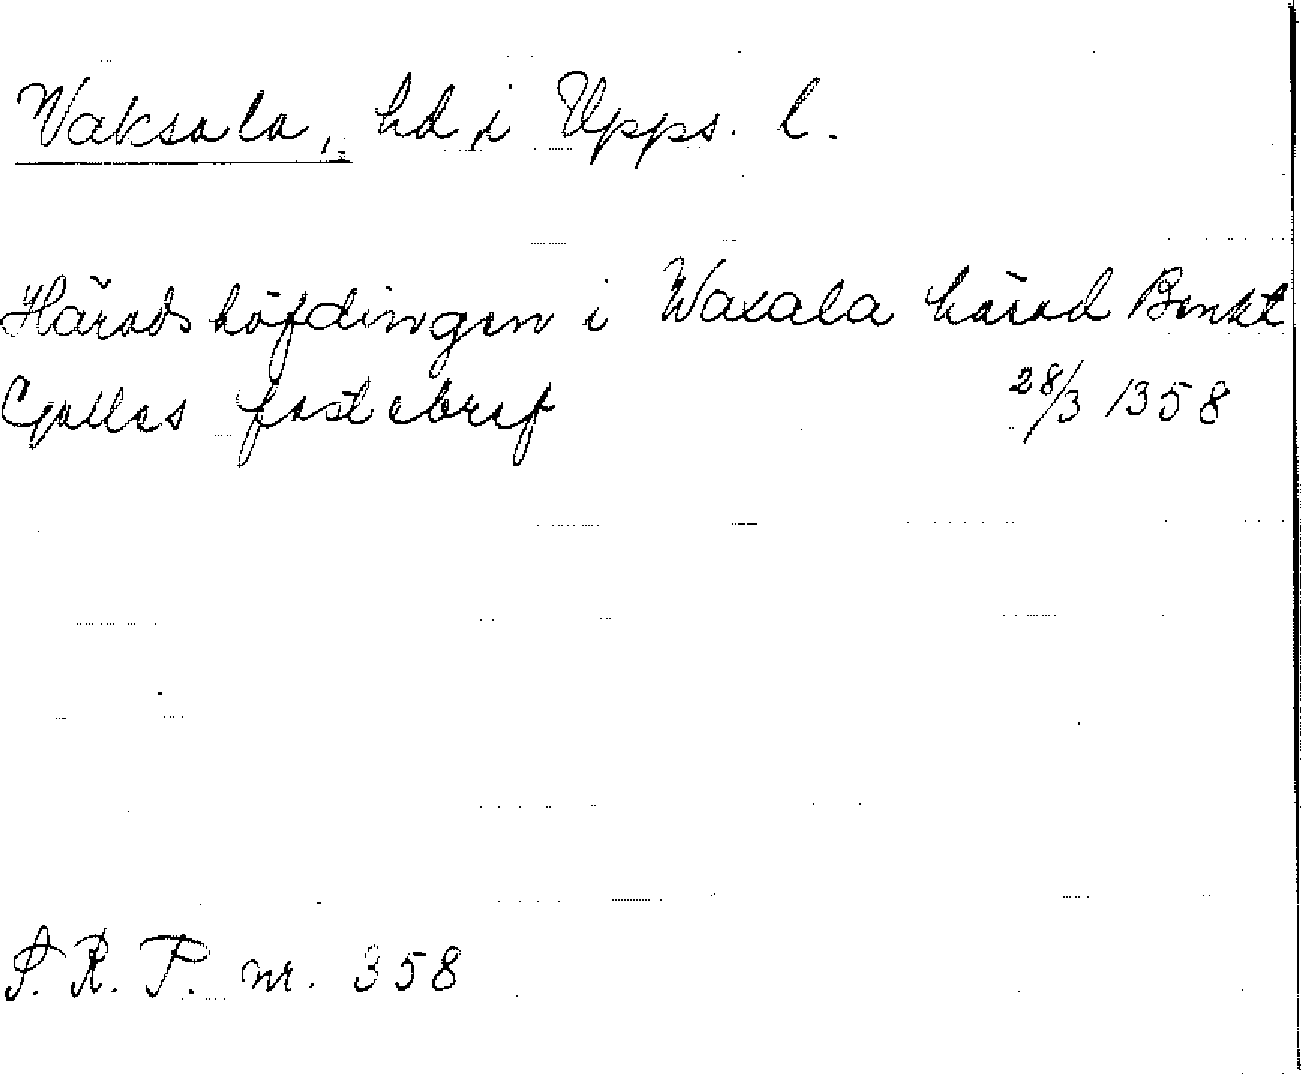 Vaksala, hd i Upps. l.
Häradshöfdingen i Waxala härad Benkt
Gyllas fastebref 28/3 1358
S. R. P. nr. 358